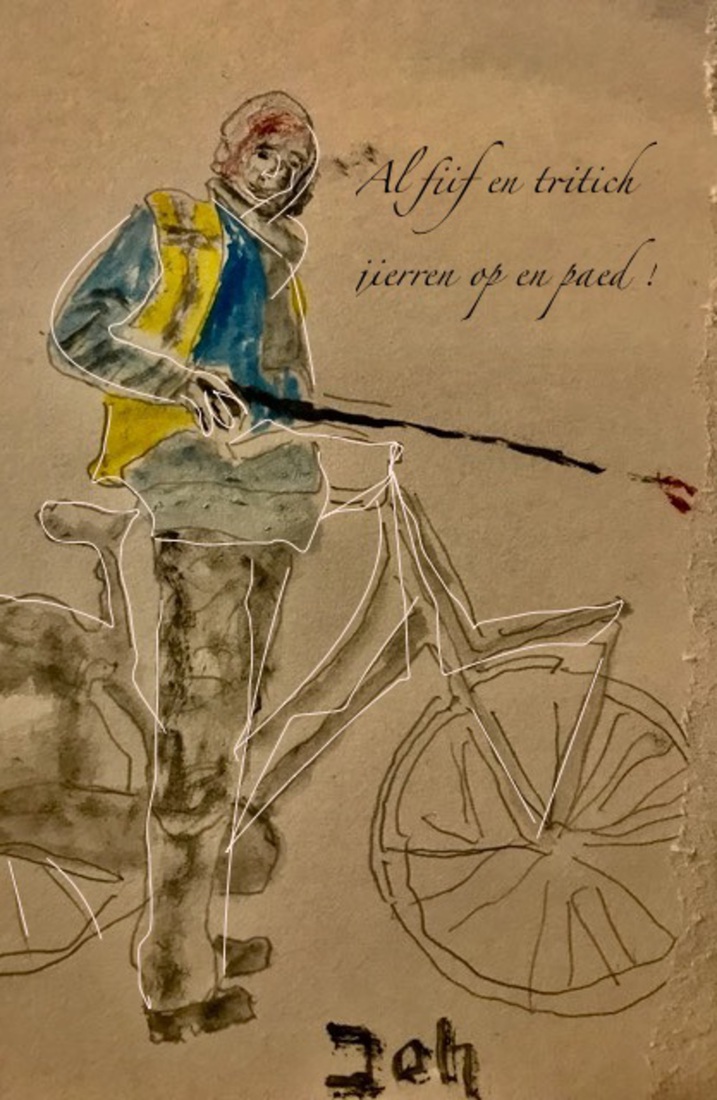 Al fiif en tritich
jierren op en paed !
Jeh